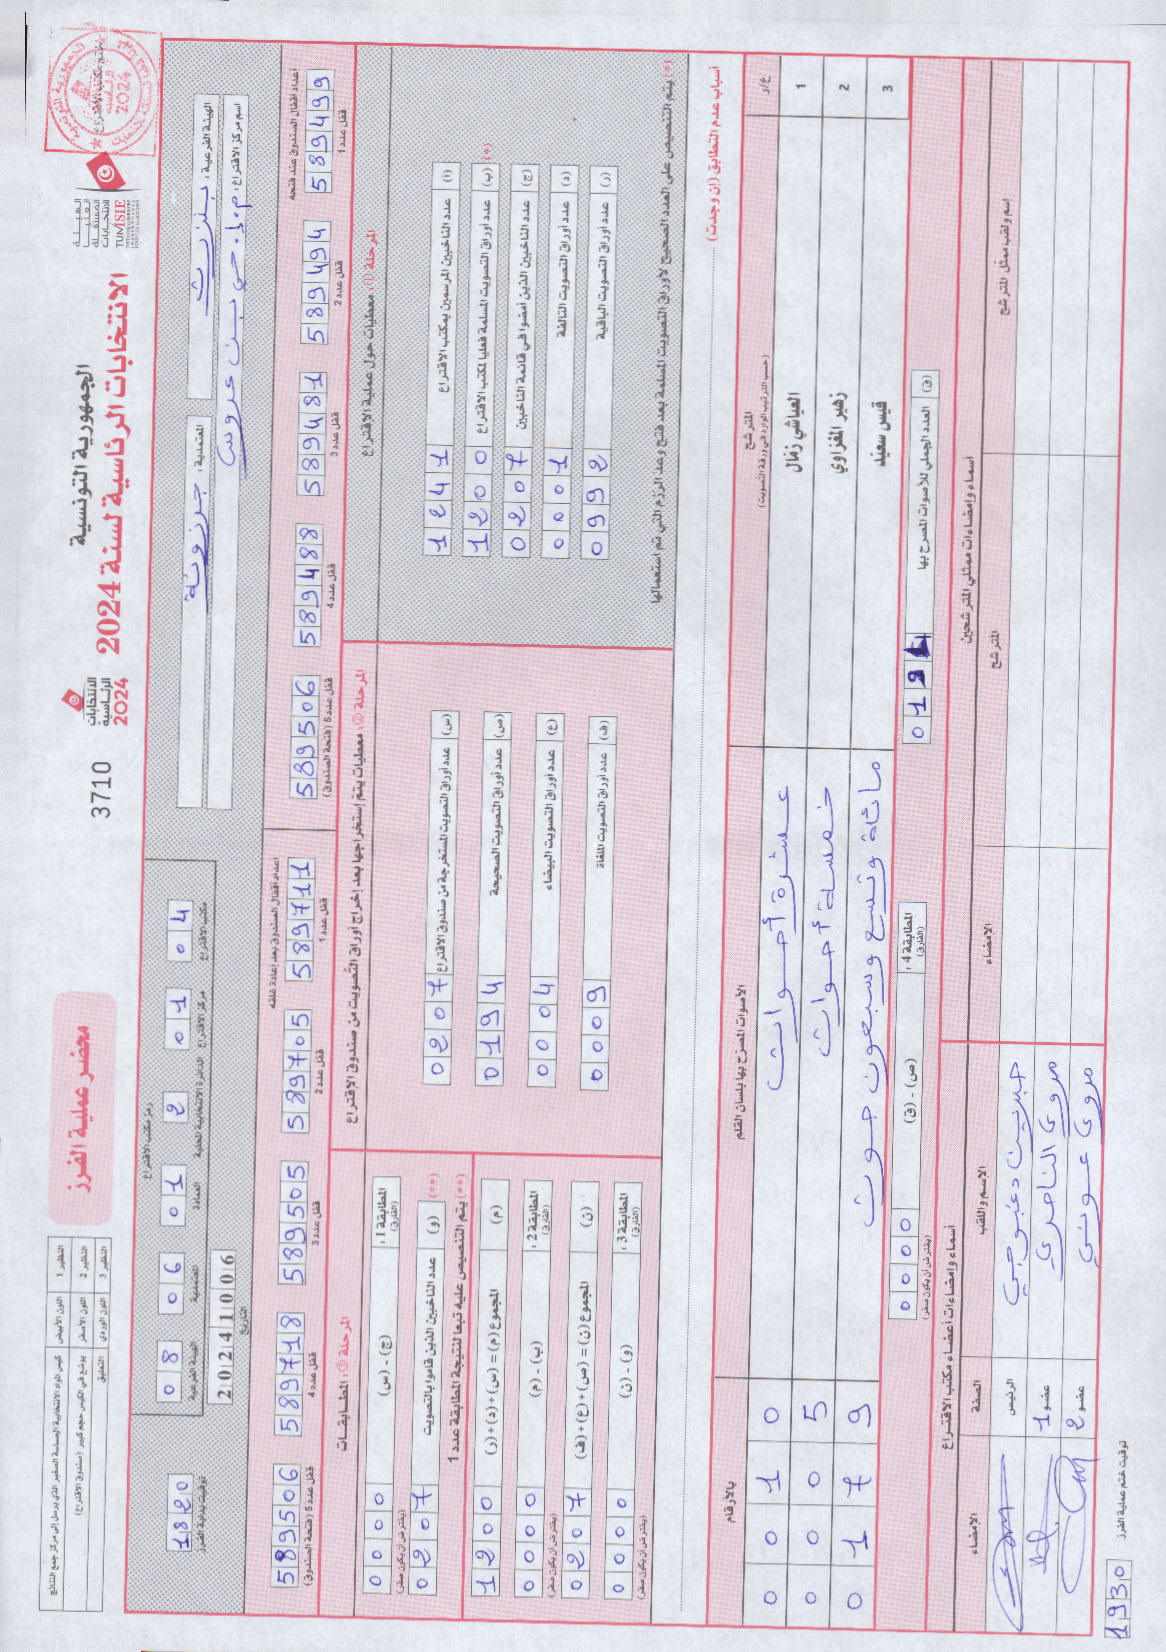 الجمهورية التونسية
الانتخابات الرئاسية لسنة 2024
الهيئة
العليا
المستقلة
للانتخابات
TUNISIE
الانتخابات
الرئاسية
2024
3710
محضر عملية الفرز
النظير 1 اللون الأبيض
النظير 2 اللون الأصفر
النظير 3 اللون الوردي التعليق
الهيئة الفرعية : بنزرت
المعتمدية : جرزونة
اسم مركز الاقتراع : م.إ. حي بن عروس
رمز مكتب الاقتراع
مكتب الاقتراع 04
مركز الاقتراع 01
الدائرة الانتخابية المحلية 2
العمادة 01
المعتمدية 06
الهيئة الفرعية 08
التاريخ 20241006
توقيت بداية الفرز 1820
أعداد أقفال الصندوق عند فتحه
قفل عدد 1 589499
قفل عدد 2 589494
قفل عدد 3 589481
قفل عدد 4 589488
قفل عدد 5 (فتحة الصندوق) 589506
أعداد أقفال الصندوق بعد إعادة غلقه
قفل عدد 1 589711
قفل عدد 2 589705
قفل عدد 3 589505
قفل عدد 4 589718
قفل عدد 5 (فتحة الصندوق) 589506
المرحلة 1: معطيات حول عملية الاقتراع
(أ) عدد الناخبين المرسمين بمكتب الاقتراع 1241
(ب) عدد أوراق التصويت المسلمة فعليا لمكتب الاقتراع 1200 (*)
(ج) عدد الناخبين الذين أمضوا في قائمة الناخبين 0207
(د) عدد أوراق التصويت التالفة 0001
(ر) عدد أوراق التصويت الباقية 0992
(*) يتم التنصيص على العدد الصحيح لأوراق التصويت المسلمة بعد فتح وعد الرزم التي تم استعمالها
المرحلة 2: معطيات يتم إستخراجها بعد إخراج أوراق التصويت من صندوق الاقتراع
(س) عدد أوراق التصويت المستخرجة من صندوق الاقتراع 0207
(ص) عدد أوراق التصويت الصحيحة 0194
(ع) عدد أوراق التصويت البيضاء 0004
(ف) عدد أوراق التصويت الملغاة 0009
المرحلة 3: المطابقات
المطابقة 1: (الفارق) (ج) - (س) 0000 (يفترض أن يكون صفر)
(**) (و) عدد الناخبين الذين قاموا بالتصويت 0207
(**) يتم التنصيص عليه تبعا لنتيجة المطابقة عدد 1
(م) المجموع (م) = (س)+(د)+(ر) 1200
المطابقة 2: (الفارق) (ب) - (م) 0000 (يفترض أن يكون صفر)
(ن) المجموع (ن) = (ص)+(ع)+(ف) 0207
المطابقة 3: (الفارق) (و) - (ن) 0000 (يفترض أن يكون صفر)
أسباب عدم التطابق (إن وجدت)
ع/ر المترشح (حسب الترتيب الوارد في ورقة التصويت) الأصوات المصرح بها بلسان القلم بالأرقام
1 العياشي زمّال عشرة أصوات 0010
2 زهير المغزاوي خمسة أصوات 0005
3 قيس سعيد مائة وتسع وسبعون صوت 0179
(ق) العدد الجملي للأصوات المصرح بها 0194
المطابقة 4: (الفارق) (ص) - (ق) 0000 (يفترض أن يكون صفر)
أسماء وإمضاءات ممثلي المترشحين
اسم ولقب ممثل المترشح المترشح الإمضاء
أسماء وإمضاءات أعضاء مكتب الاقتراع
الاسم واللقب الصفة الإمضاء
الرئيس
مروى الناصري عضو 1
مروى عوني عضو 2
توقيت ختم عملية الفرز 1930